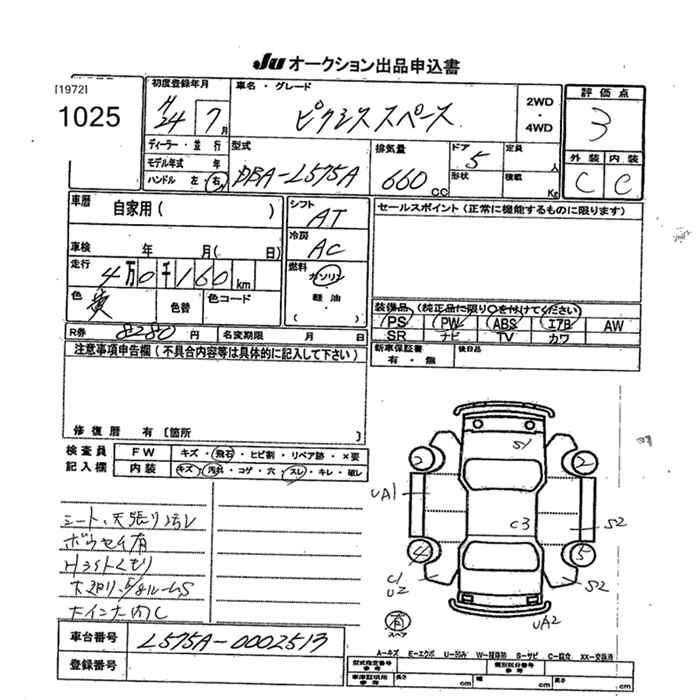 Ju オークション出品申込書
[1972]
1025
初度登録年月
H24 7月
車名・グレード
ピクシススペース
2WD
・
4WD
評価点
3
ディーラー・並行
モデル年式 年
ハンドル 左・右
型式
DBA-L575A
排気量
660 cc
ドア
5
形状
定員
人
積載
Kg
外装 内装
C C
車歴
自家用( )
シフト
AT
冷房
AC
燃料
ガソリン
軽油
( )
セールスポイント(正常に機能するものに限ります)
車検 年 月( 日)
走行
4万0千160km
色
黄
色替
色コード
装備品(純正品に限り○を付けてください)
PS PW ABS エアB AW
SR ナビ TV カワ
R券 8280円
名変期限 月 日
新車保証書
有・無
後日品
注意事項申告欄(不具合内容等は具体的に記入して下さい)
修復歴 有[箇所 ]
検査員
記入欄
FW キズ・飛石・ヒビ割・リペア跡・×要
内装 キズ・汚れ・コゲ・穴・スレ・キレ・破レ
シート、天張り汚レ
ボウセイ有
Hライトくもり
S1
2
2
UA1
C3
S2
4
5
C1
U2
S2
UA2
有
スペア
車台番号 L575A-0002513
登録番号
A-キズ E-エクボ U-凹み W-補修跡 S-サビ C-腐食 XX-交換済
型式指定番号
参考
類別区分番号
参考
車庫証明用
参考
長さ cm
幅 cm
高さ cm